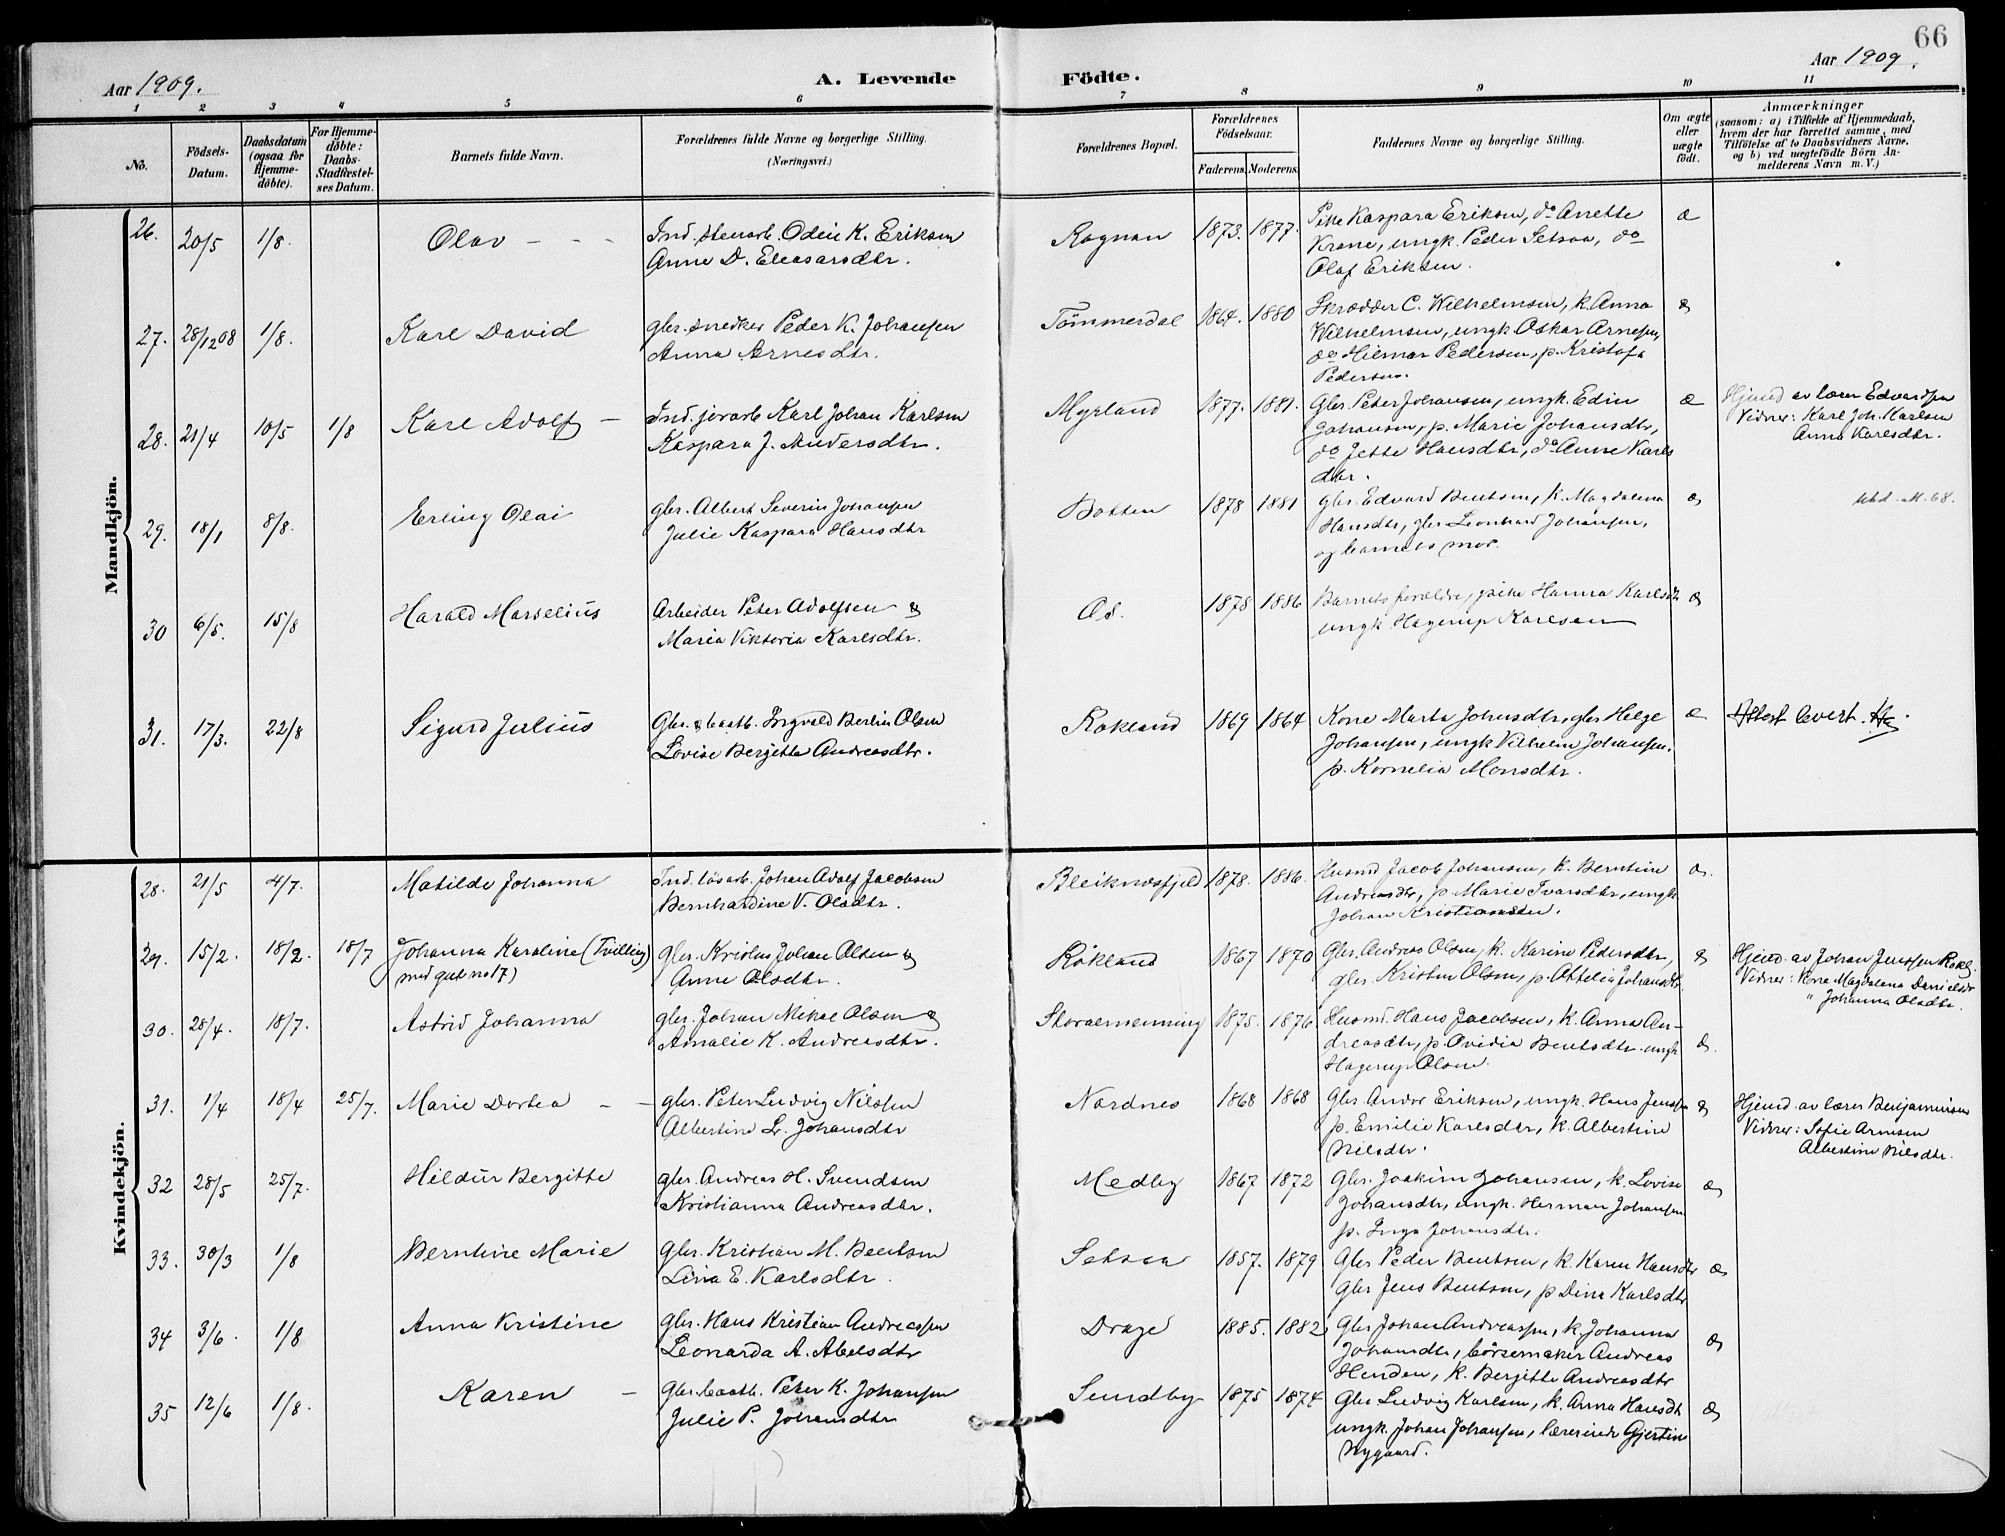 66
Aar 1909.
A. Levende
Födte.
Aar 1909.
1 2 3 4 5 6 7 8 9 10 11
No.
Födsels-Datum.
Daabsdatum (ogsaa for Hjemme-döbte).
For Hjemme-döbte: Daabs-Stadfæstel-ses Datum.
Barnets fulde Navn.
Forældrenes fulde Navne og borgerlige Stilling.
(Næringsvei.)
Forældrenes Bopæl.
Forældrenes Födselsaar.
Faderens. Moderens.
Faddernes Navne og borgerlige Stilling.
Om ægte eller uægte födt.
Anmærkninger
(saasom: a) i Tilfælde af Hjemmedaab,
hvem der har forrettet samme, med
Tilföielse af to Daabsvidners Navne,
og b) ved uægtefödte Börn An-
melderens Navn m. V.)
Mandkjön.
26. 20/5 1/8. Olav Ind. stenarb. Odin K. Eriksen Rognan 1873. 1877. Pike Kaspara Eriksen, do Anette æ
Anne D. Eleasarsdtr. Krane, ungk. Peder Setsaa, do
Olaf Eriksen.
27. 28/12 08 1/8. Karl David gbr. snedker Peder K. Johansen Tömmerdal 1864. 1880 Skrædder C. Wilhelmsen, k. Anna æ
Anna Arnesdtr. Wilhelmsen, ungk Oskar Arnesen,
do Hilmar Pedersen, p. Kristofa
Pedersen.
28. 21/4 10/5 1/8 Karl Adolf Ind. jerarb Karl Johan Karlsen Myrland 1877. 1881. Gbr. Peter Johansen, ungk. Edin æ Hjemd av lærer Edvardsen
Kaspara J. Andersdtr. Johansen, p. Marie Johansdtr, Vidner: Karl Joh. Karlsen
do Jette Hansdtr, do Anne Karls Anna Karlsdtr.
dtr.
29. 18/1 8/8. Erling Olai gbr. Albert Severin Johansen Botten 1878 1881 gbr. Edvard Bentsen, k. Magdalena æ
Julie Kaspara Hansdtr Hansdtr, gbr Leonhard Johansen,
og barnets mor.
30 6/5. 15/8 Harald Marselius Arbeider Peter Adolfsen & Os. 1878 1886 Barnets forældre, pike Hanna Karlsdtr æ
Maria Viktoria Karlsdtr. ungk Hagerup Karlsen
31. 17/3. 22/8 Sigurd Julius Gbr. & baatb. Ingvald Berlin Olsen Rokland 1869 1864 Kone Marta Johnsdtr, gbr Helge æ
Lovise Bergitte Andreasdtr. Johansen, ungk Vilhelm Johansen.
p. Kornelia Monsdtr.
Kvindekjön.
28. 21/5 4/7. Matilde Johanna Ind. lösarb. Johan Adolf Jacobsen Bleiknesfjeld 1878. 1886. Husmd Jacob Johansen, k. Berntine æ.
Bernhardine V. Olsdtr. Andreasdtr, p. Marie Ivarsdtr, ungk
Johan Kristiansen.
29. 15/2. 18/2. 18/7 Johanna Karoline (Tvilling gbr. Kristen Johan Olsen & Rökland 1867 1870 Gbr. Andreas Olsen, k. Karine Pedersdtr, æ Hjemd. av Johan Jenssen Rökl.
med gut no 17) Anne Olsdtr. gbr. Kristen Olsen, p. Ottelia Johansdtr. Vidner: Kone Magdalena Danielsdtr
" Johanna Olsdtr.
30. 28/4. 18/7. Astrid Johanna gbr. Johan Mikal Olsen & 1875. 1876 Husmd. Hans Jacobsen, k. Anna An-
Amalie K. Andreasdtr. dreasdtr, p. Ovidia Bentsdtr. ungk æ.
Hagerup Olsen.
31. 1/4 18/4 25/7. Marie Dortea gbr. Peter Ludvig Nilssen Nordnes 1868 1868 Gbr. Andor Eriksen, ungk. Hans Jenssen æ Hjemd. av lærer Benjaminsen
Albertine L. Johansdtr p. Emilie Karlsdtr, k. Albertine Vidner: Sofie Arnesen
Nilsdtr. Albertine Nilsdtr.
32 28/5 25/7. Hildur Bergitte gbr. Andreas H. Svendsen Medby 1867 1872 Gbr. Joakim Johansen, k. Lovise æ
Kristianna Andreasdtr. Johansdtr, ungk. Herman Johansen
p. Inga Johansdtr.
33. 30/3 1/8 Berntine Marie Gbr. Kristian M. Bentsen Setsaa 1857. 1879 Gbr Peder Bentsen, k Karen Hansdtr æ
Lina E. Karlsdtr. Gbr Jens Bentsen, p Dina Karlsdtr
34 3/6. 1/8 Anna Kristine Gbr. Hans Kristian Andreassen Drage 1885. 1882 Gbr Johan Andreassen, k. Johanna æ
Leonarda A. Abelsdtr Johansdtr, börsemaker Andreas
Henden, k. Bergitte Andreasdtr
35 12/6 1/8. Karen Gbr. baatb. Peter K. Johansen Sundby 1875 1874 Gbr Ludvig Karlsen, k. Anna Hansdtr æ
Julie P. Johansdtr ungk. Johan Johansen, lærerinde Gjertine
Nygaard.